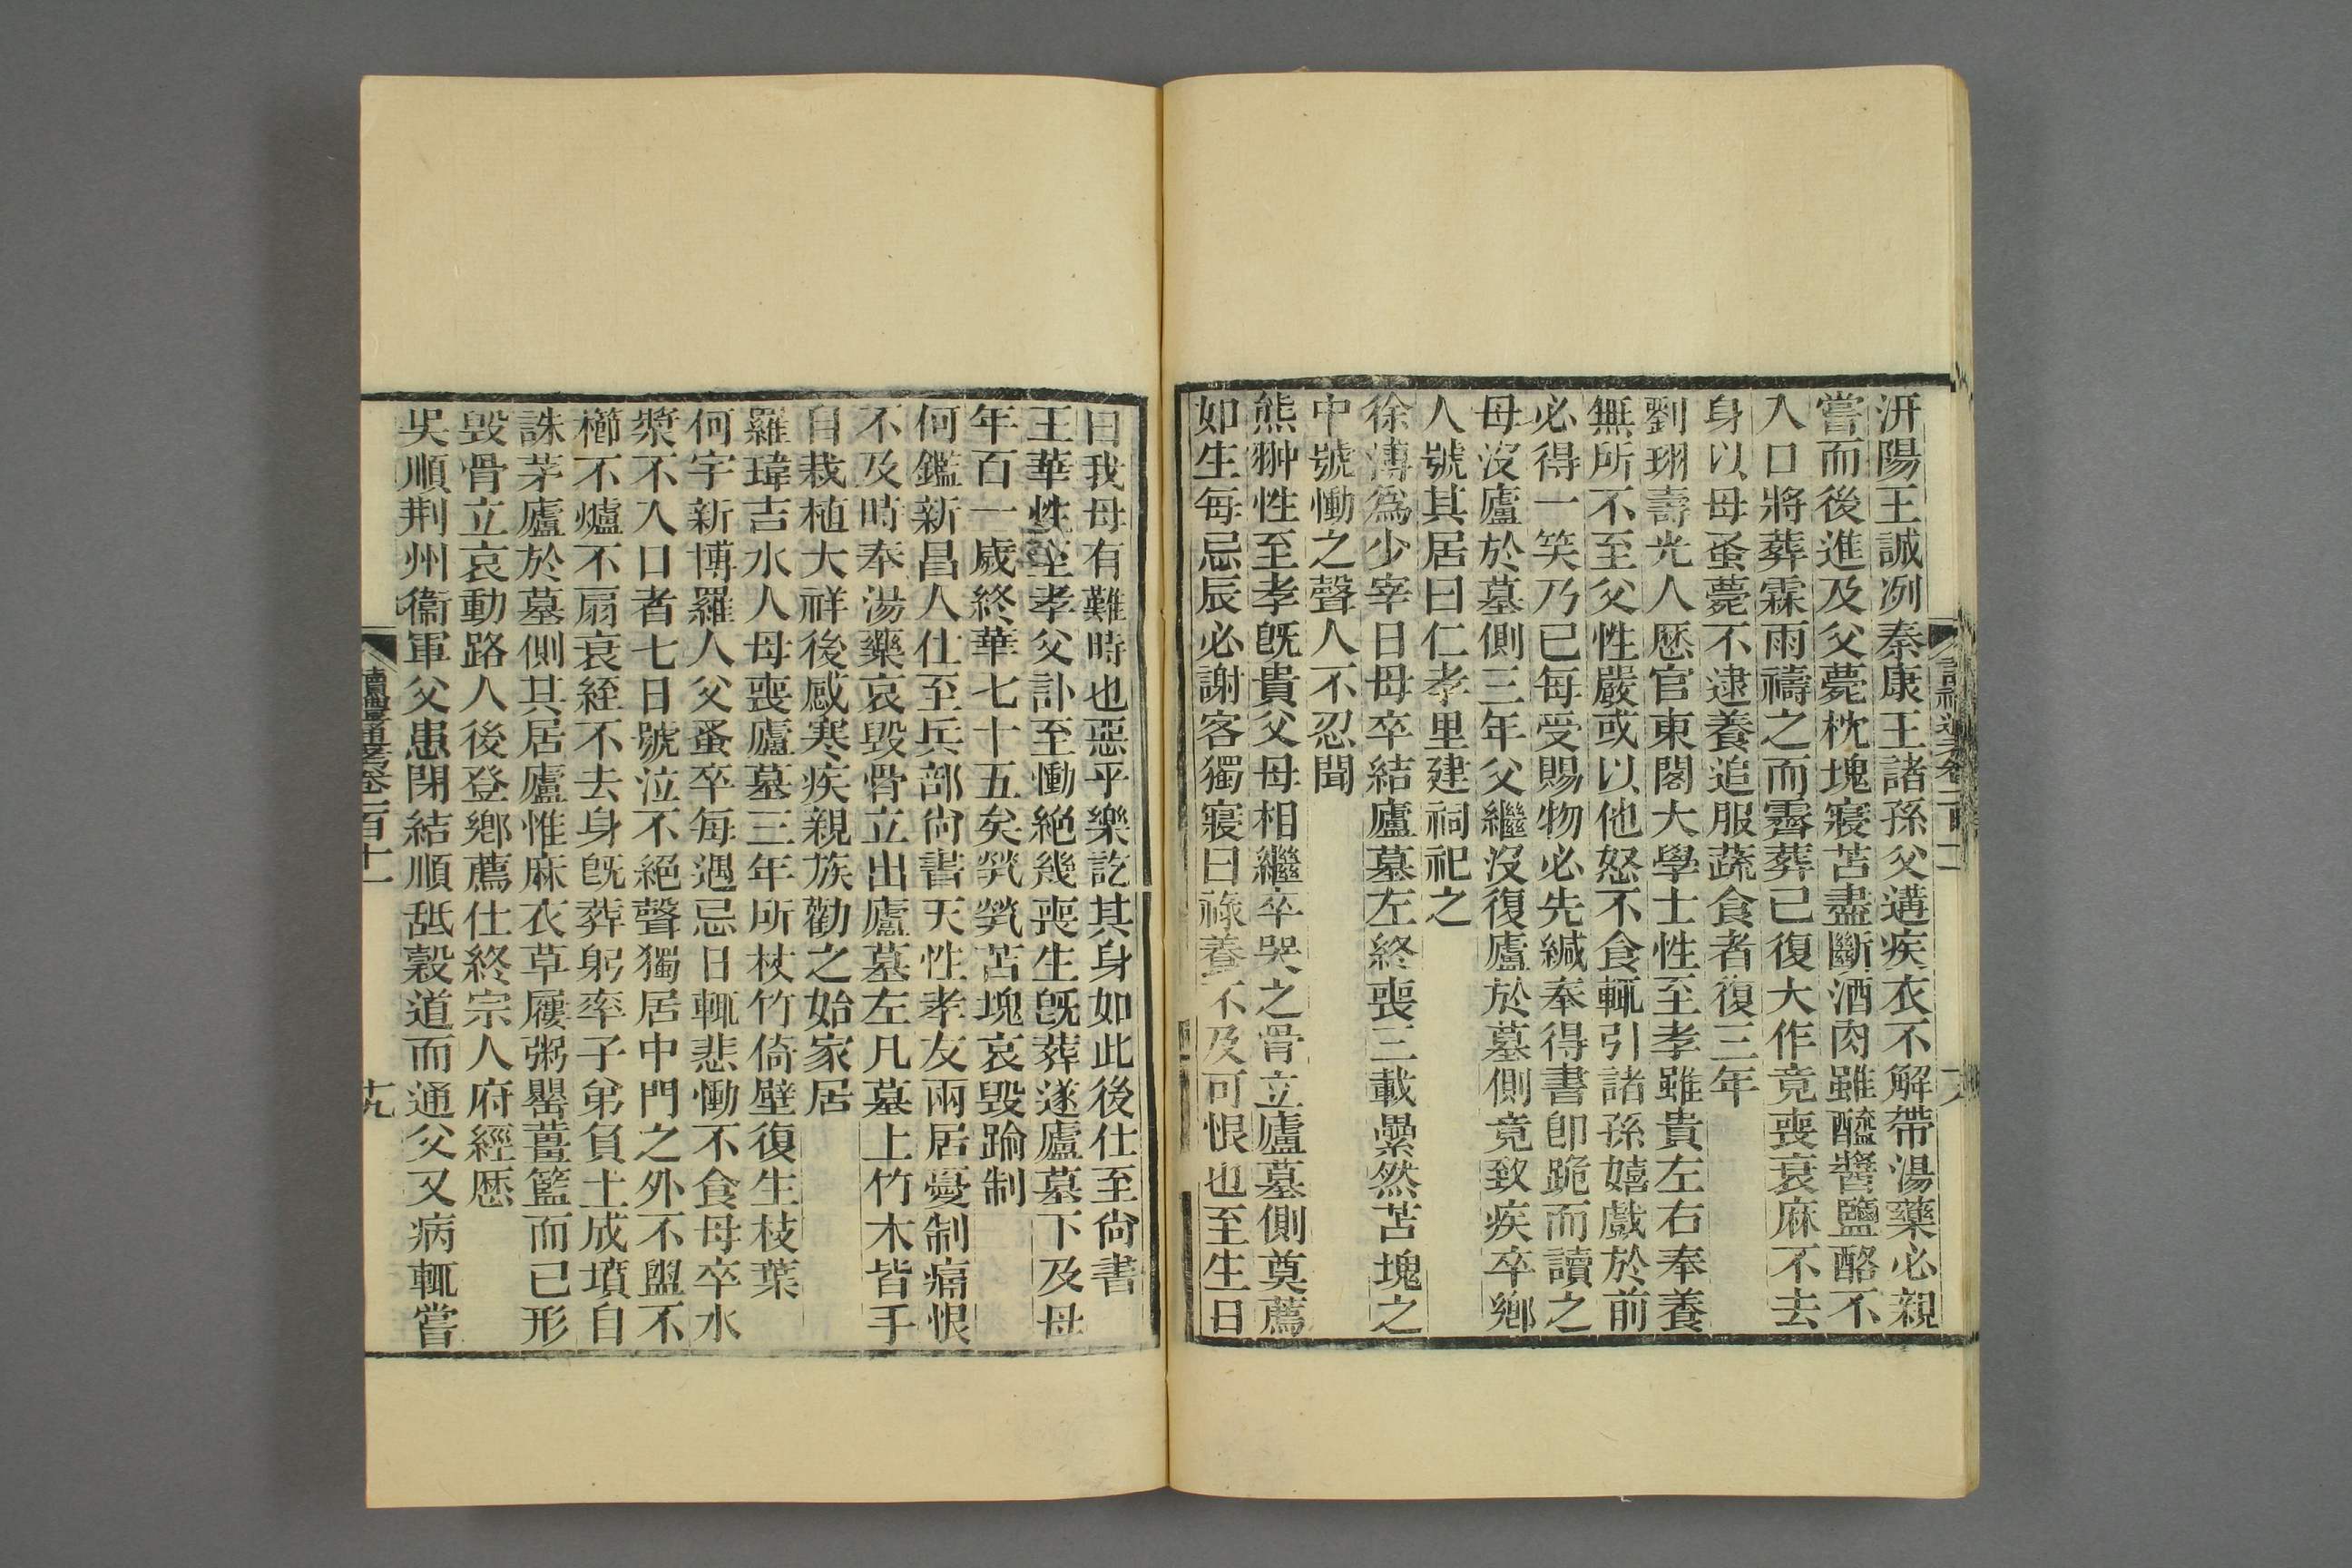 汧陽王誠冽秦康王諸孫父遘疾衣不解帶湯藥必親
嘗而後進及父薨枕塊寢苫盡斷酒肉雖醯醬鹽酪不
入口將葬霖雨禱之而霽葬已復大作竟喪衰麻不去
身以母蚤薨不逮養追服蔬食者復三年
劉珝壽光人歷官東閣大學士性至孝雖貴左右奉養
無所不至父性嚴或以他怒不食輒引諸孫嬉戲於前
必得一笑乃已每受賜物必先緘奉得書卽跪而讀之
母沒廬於墓側三年父繼沒復廬於墓側竟致疾卒鄕
人號其居曰仁孝里建祠祀之
徐溥爲少宰日母卒結廬墓左終喪三載纍然苫塊之
中號慟之聲人不忍聞
熊翀性至孝旣貴父母相繼卒哭之骨立廬墓側奠薦
如生每忌辰必謝客獨寢曰祿養不及可恨也至生日
曰我母有難時也惡乎樂訖其身如此後仕至尙書
王華性至孝父訃至慟絕幾喪生旣葬遂廬墓下及母
年百一歲終華七十五矣煢煢苫塊哀毀踰制
何鑑新昌人仕至兵部尙書天性孝友兩居憂制痛恨
不及時奉湯藥哀毀骨立出廬墓左凡墓上竹木皆手
自栽植大祥後感寒疾親族勸之始家居
羅瑋吉水人母喪廬墓三年所杖竹倚壁復生枝葉
何宇新博羅人父蚤卒每遇忌日輒悲慟不食母卒水
漿不入口者七日號泣不絕聲獨居中門之外不盥不
櫛不爐不扇衰絰不去身旣葬躬率子弟負土成墳自
誅茅廬於墓側其居廬惟麻衣草屨粥罌薑籃而已形
毀骨立哀動路人後登鄕薦仕終宗人府經歷
吳順荆州衞軍父患閉結順舐穀道而通父又病輒嘗
讀禮通考卷一百十一
十九